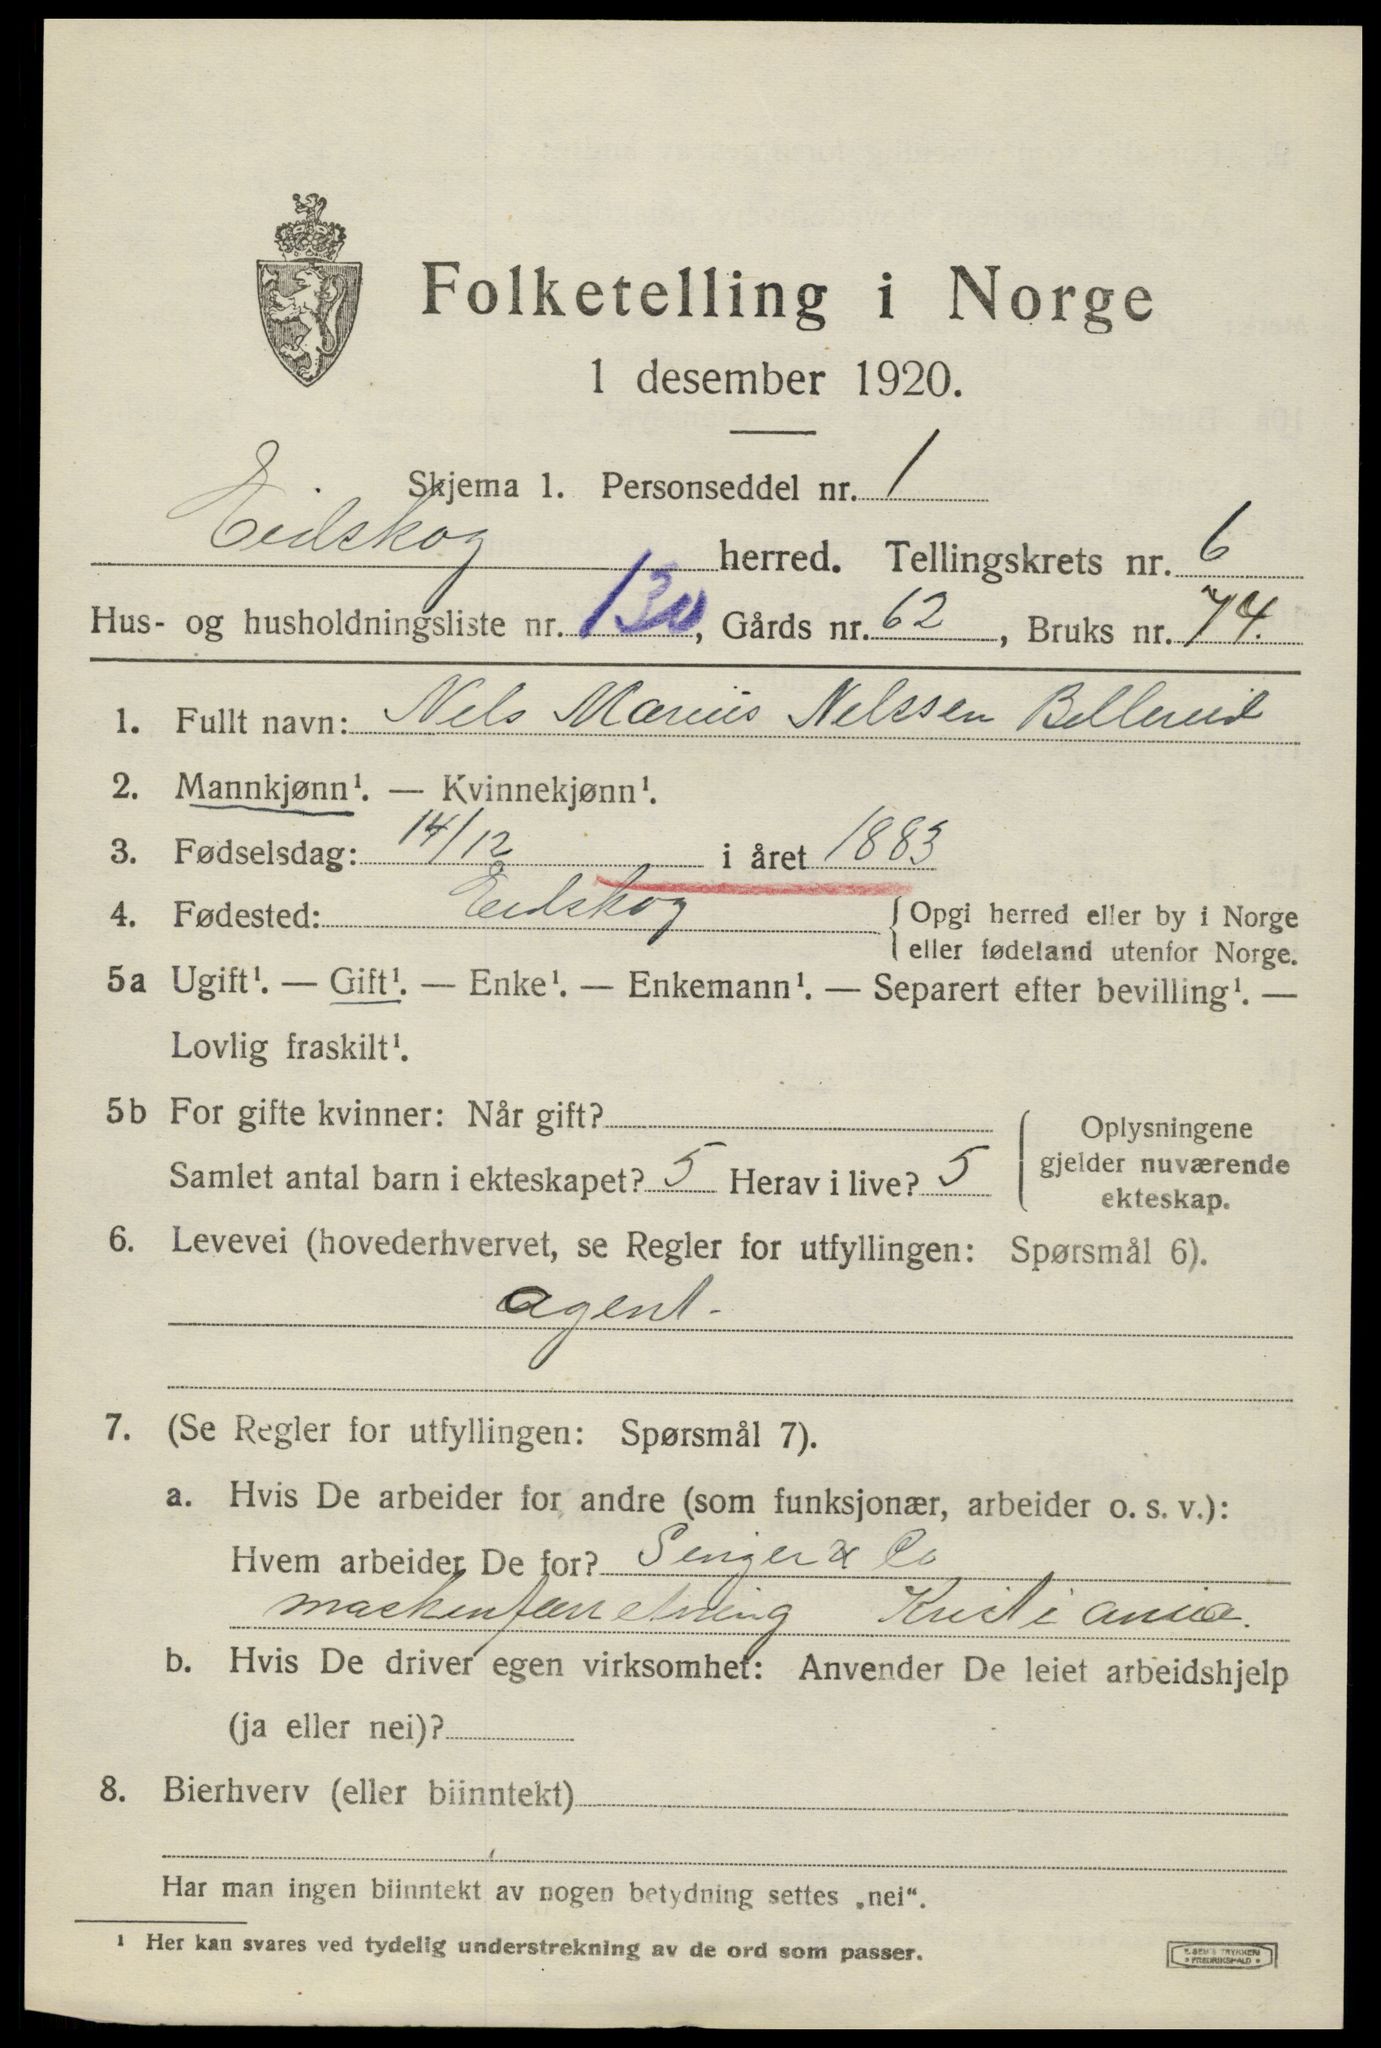 Folketelling i Norge
1 desember 1920.
Skjema 1. Personseddel nr. 1
Eidskog herred. Tellingskrets nr. 6
Hus- og husholdningsliste nr. 130, Gårds nr. 62, Bruks nr. 74.
1. Fullt navn: Nels Marius Nelssen Bellerud
2. Mannkjønn¹. — Kvinnekjønn¹.
3. Fødselsdag: 14/12 i året 1883
4. Fødested: Eidskog { Opgi herred eller by i Norge
eller fødeland utenfor Norge.
5a Ugift¹. — Gift¹. — Enke¹. — Enkemann¹. — Separert efter bevilling¹. —
Lovlig fraskilt¹.
5b For gifte kvinner: Når gift?
Samlet antal barn i ekteskapet? 5 Herav i live? 5
Oplysningene
gjelder nuværende
ekteskap.
6. Levevei (hovederhvervet, se Regler for utfyllingen: Spørsmål 6).
agent.
7. (Se Regler for utfyllingen: Spørsmål 7).
a. Hvis De arbeider for andre (som funksjonær, arbeider o. s. v.):
Hvem arbeider De for? Senger & Co
maskenforretning Kristiania.
b. Hvis De driver egen virksomhet: Anvender De leiet arbeidshjelp
(ja eller nei)?
8. Bierhverv (eller biinntekt)
Har man ingen biinntekt av nogen betydning settes „nei“.
¹ Her kan svares ved tydelig understrekning av de ord som passer.
FREDRIKSHALD